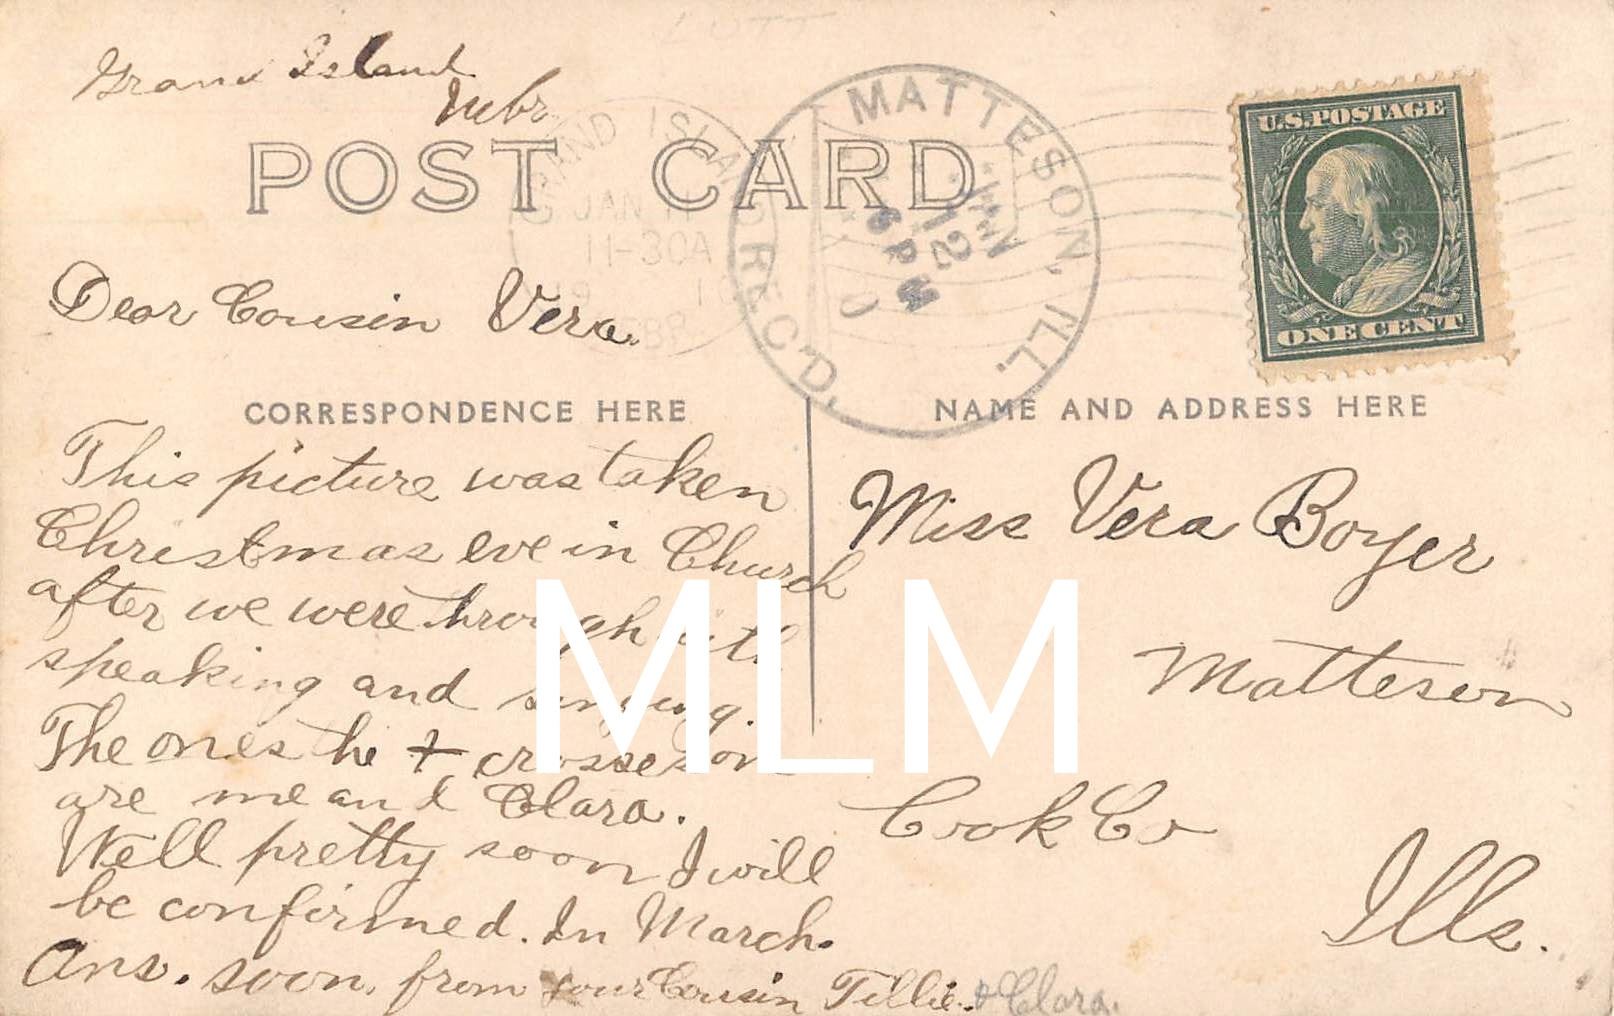 Grand Island
Nebr
POST CARD
GRAND ISLAND
JAN 11
11-30A
19 10
NEBR
MATTESON, ILL.
REC'D.
JAN
12
6 PM
U.S. POSTAGE
ONE CENT
Dear Cousin Vera.
CORRESPONDENCE HERE
This picture was taken
Christmas eve in Church
after we were through with
speaking and singing.
The ones the + crosses on
are me and Clara.
Well pretty soon I will
be confirmed. In March.
Ans. soon. from your Cousin Tillie. & Clara.
NAME AND ADDRESS HERE
Miss Vera Boyer
Matteson
Cook Co
Ills.
MLM